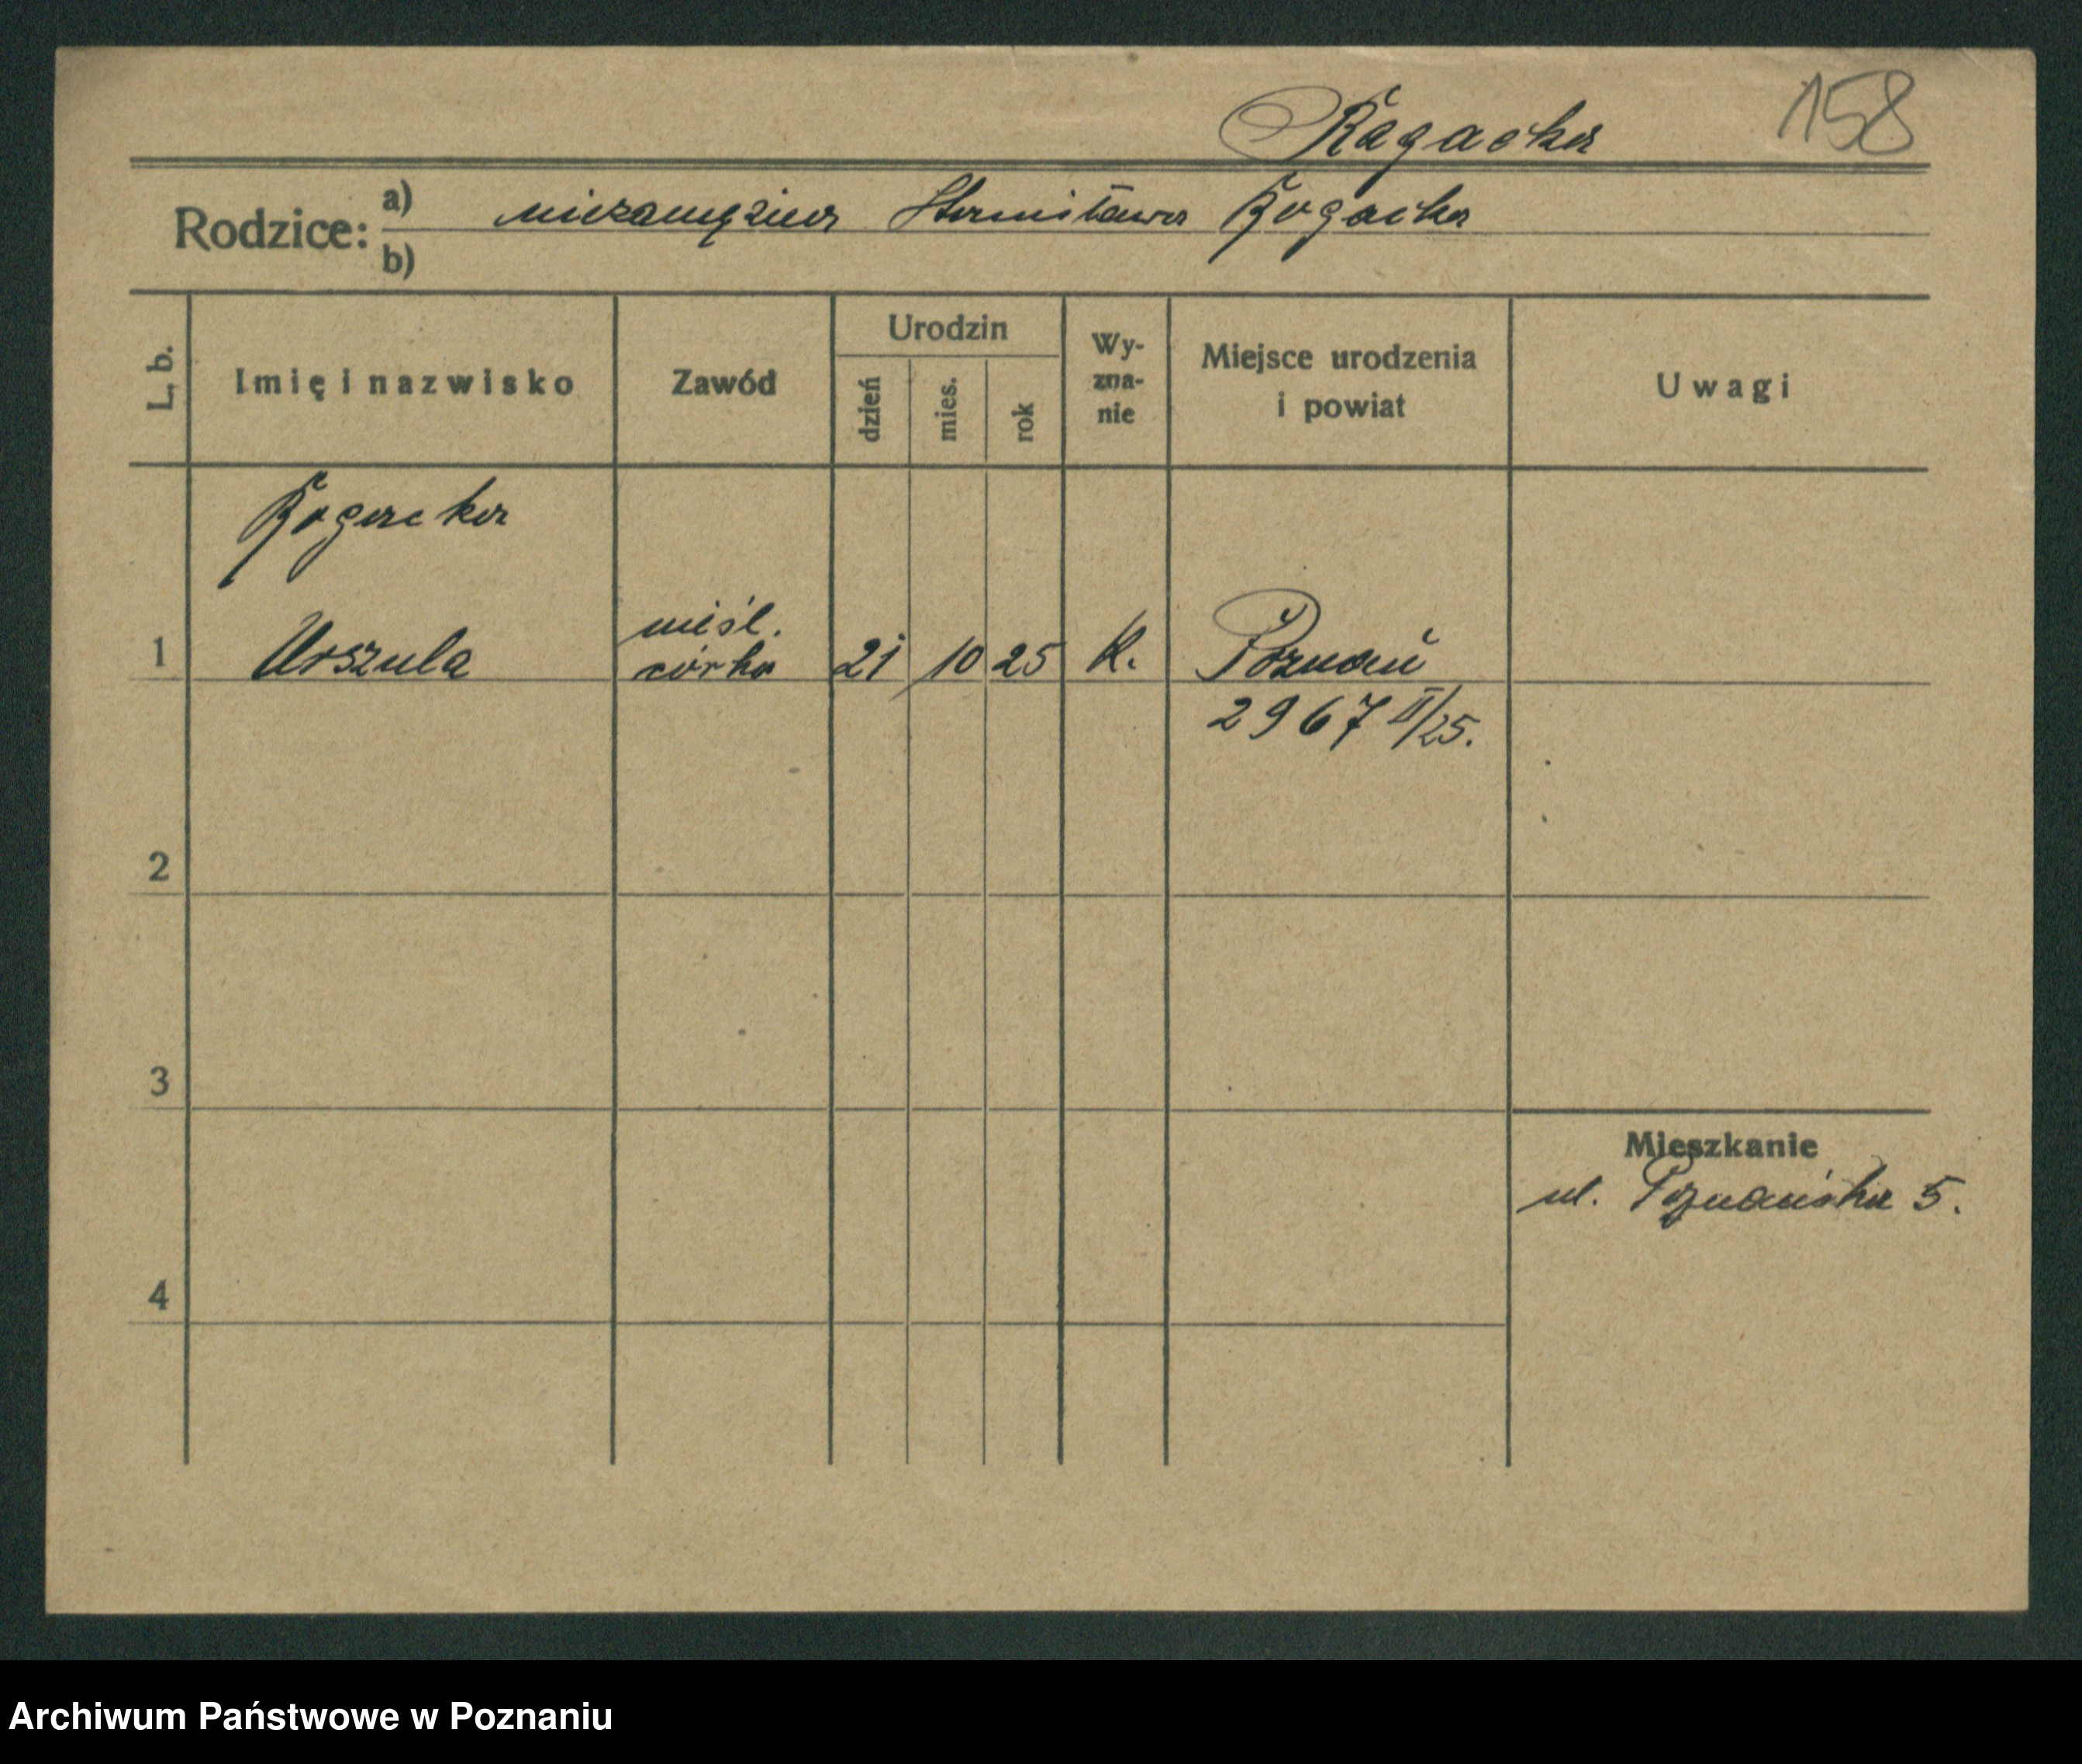 Ragacka 158
Rodzice: a) niezamężna Stanisława Rogacka
b)
L. b. Imię i nazwisko Zawód Urodzin dzień mies. rok Wy-zna-nie Miejsce urodzenia i powiat Uwagi
Rogacka
nieśl.
1 Urszula córka 21 10 25 k. Poznań
2967 II/25.
2
3
Mieszkanie
ul. Poznańska 5.
4
Archiwum Państwowe w Poznaniu